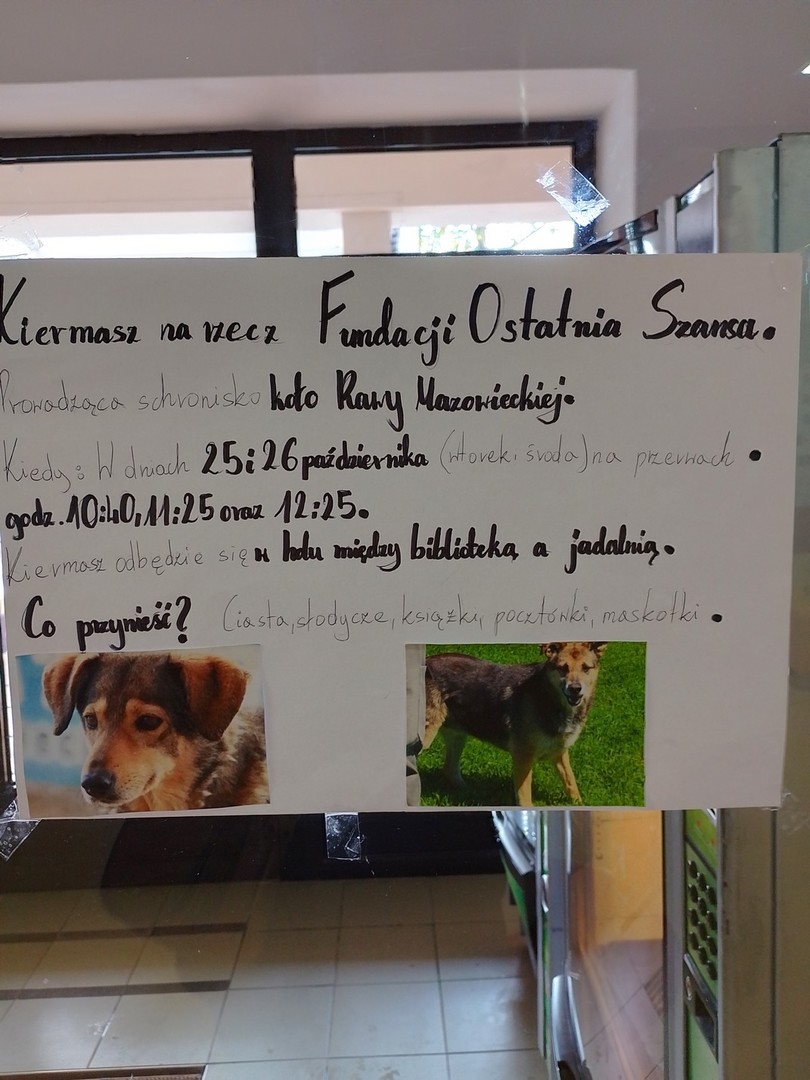 Kiermasz na rzecz Fundacji Ostatnia Szansa.
Prowadząca schronisko koło Rawy Mazowieckiej.
Kiedy: W dniach 25 i 26 października (wtorek i środa) na przerwach.
godz. 10:40, 11:25 oraz 12:25.
Kiermasz odbędzie się w holu między biblioteką a jadalnią.
Co przynieść? Ciasta, słodycze, książki, pocztówki, maskotki.